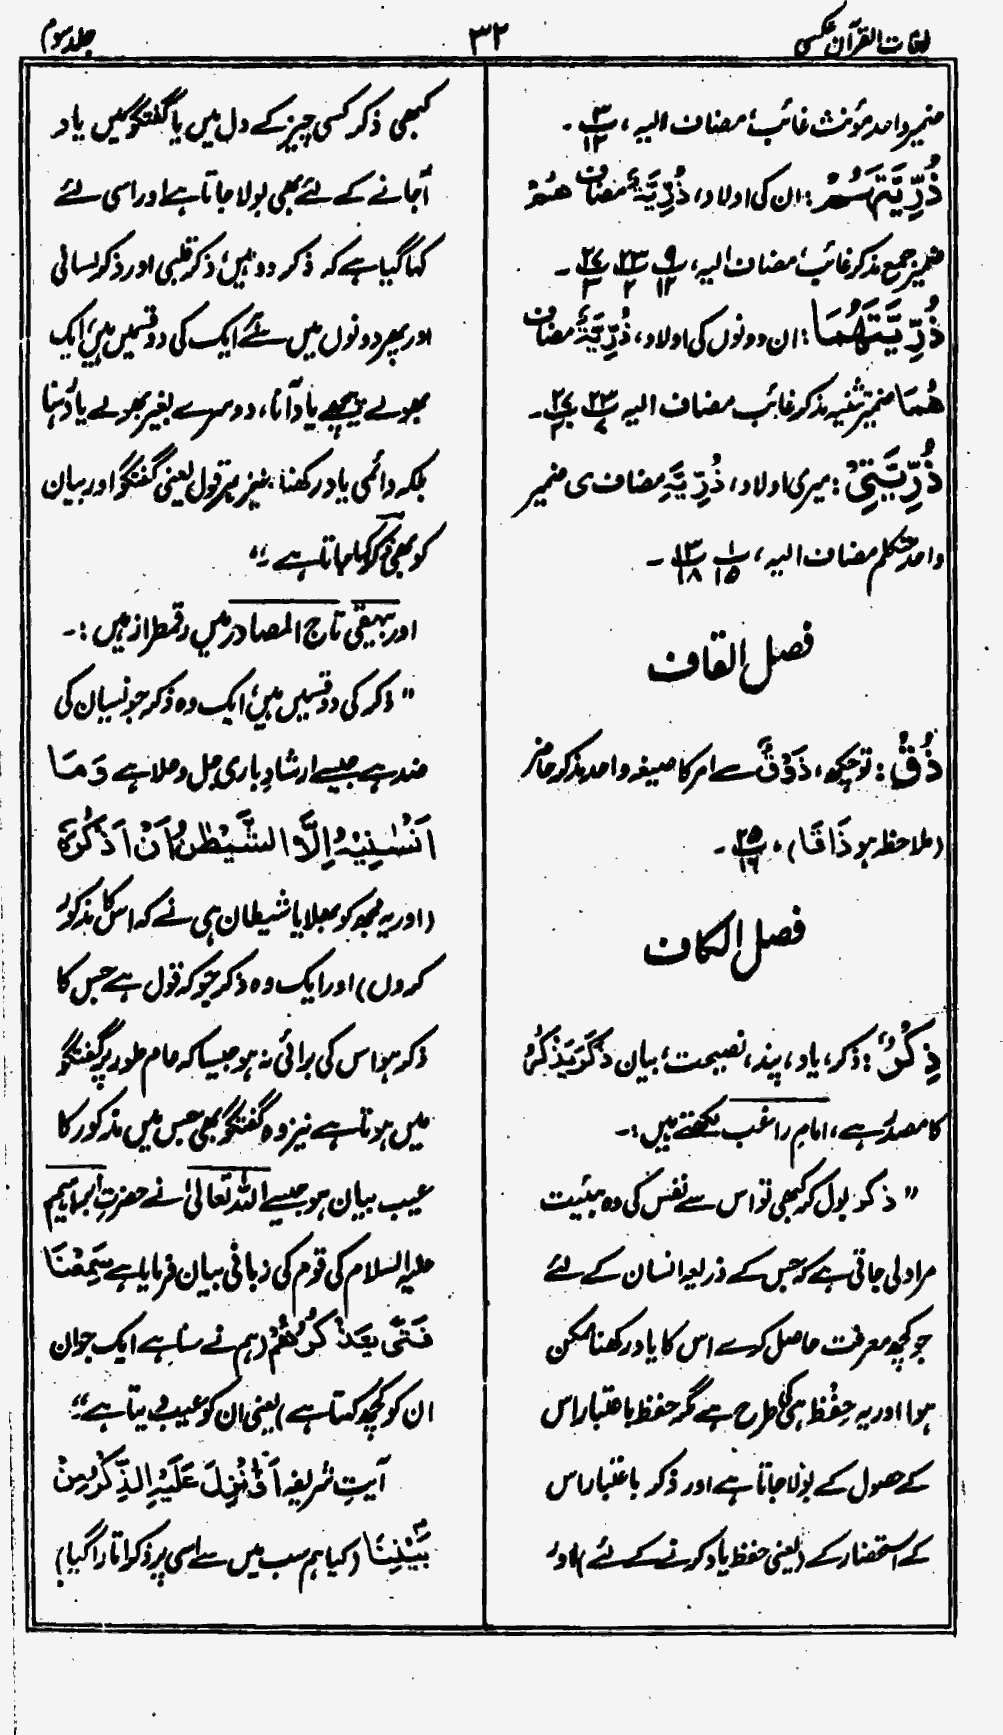 لغات القرآن عکسی
۳۲
جلد سوم
ضمیر واحد مؤنث غائب، مضاف الیہ، پ۳/۱۲ ۔
ذُرِّيَّتَهُمْ : ان کی اولاد، ذُرِّيَّةَ مضاف هُمْ
ضمیر جمع مذکر غائب، مضاف الیہ، پ۹/۱۲ پ۲۳/۲ پ۲۷/۳ ۔
ذُرِّيَّتَهُمَا : ان دونوں کی اولاد، ذُرِّيَّةَ مضاف
هُمَا ضمیر تثنیہ مذکر غائب مضاف الیہ پ۲۳/۷ پ۲۷/۲۰ ۔
ذُرِّيَّتِيْ : میری اولاد، ذُرِّيَّةِ مضاف ی ضمیر
واحد متکلم مضاف الیہ، پ۱/۱۵ پ۱۳/۱۸ ۔
فصل القاف
ذُقْ : تو چکھ، ذَوْقٌ سے امر کا صیغہ واحد مذکر حاضر
(ملاحظہ ہو ذَاقَا)، پ۲۵/۱۶ ۔
فصل الکاف
ذِكْرٌ : ذکر، یاد، پند، نصیحت، بیان ذَكَرَ يَذْكُرُ
کا مصدر ہے، امام راغب لکھتے ہیں :۔
” ذکر بول کر کبھی تو اس سے نفس کی وہ ہیئت
مراد لی جاتی ہے کہ جس کے ذریعہ انسان کے لئے
جو کچھ معرفت حاصل کرے اس کا یاد رکھنا ممکن
ہوا اور یہ حِفْظ ہی کی طرح ہے مگر حفظ باعتبار اس
کے حصول کے بولا جاتا ہے اور ذکر باعتبار اس
کے استحضار کے (یعنی حفظ یاد کرنے کے لئے) اور
کبھی ذکر کسی چیز کے دل میں یا گفتگو میں یاد
آجانے کے لئے بھی بولا جاتا ہے اور اسی لئے
کہا گیا ہے کہ ذکر دو ہیں، ذکر قلبی اور ذکر لسانی
اور پھر دونوں میں سے ایک کی دو قسمیں ہیں، ایک
بھولے پیچھے یاد آنا، دوسرے بغیر بھولے یاد رہنا
بلکہ دائمی یاد رکھنا، نیز ہر قول یعنی گفتگو اور بیان
کو بھی ذکر کہا جاتا ہے ۔“
اور بیہقی تاج المصادر میں رقمطراز ہیں :۔
” ذکر کی دو قسمیں ہیں، ایک وہ ذکر جو نسیان کی
ضد ہے جیسے ارشاد باری جل وعلا ہے وَمَا
اَنْسٰنِيْهُ اِلَّا الشَّيْطٰنُ اَنْ اَذْكُرَهٗ
(اور یہ مجھ کو بھلایا شیطان ہی نے کہ اس کا مذکور
کروں) اور ایک وہ ذکر جو کہ قول ہے جس کا
ذکر ہو اس کی برائی نہ ہو جیسا کہ عام طور پر گفتگو
میں ہوتا ہے نیز وہ گفتگو بھی جس میں مذکور کا
عیب بیان ہو جیسے اللہ تعالیٰ نے حضرتِ ابراہیم
علیہ السلام کی قوم کی زبانی بیان فرمایا ہے سَمِعْنَا
فَتًى يَّذْكُرُهُمْ (ہم نے سنا ہے ایک جوان
ان کو کچھ کہتا ہے) یعنی ان کو عیب دیتا ہے“
آیتِ شریفہ اَؤُنْزِلَ عَلَيْهِ الذِّكْرُ مِنْ
بَيْنِنَا (کیا ہم سب میں سے اسی پر ذکر اتارا گیا)